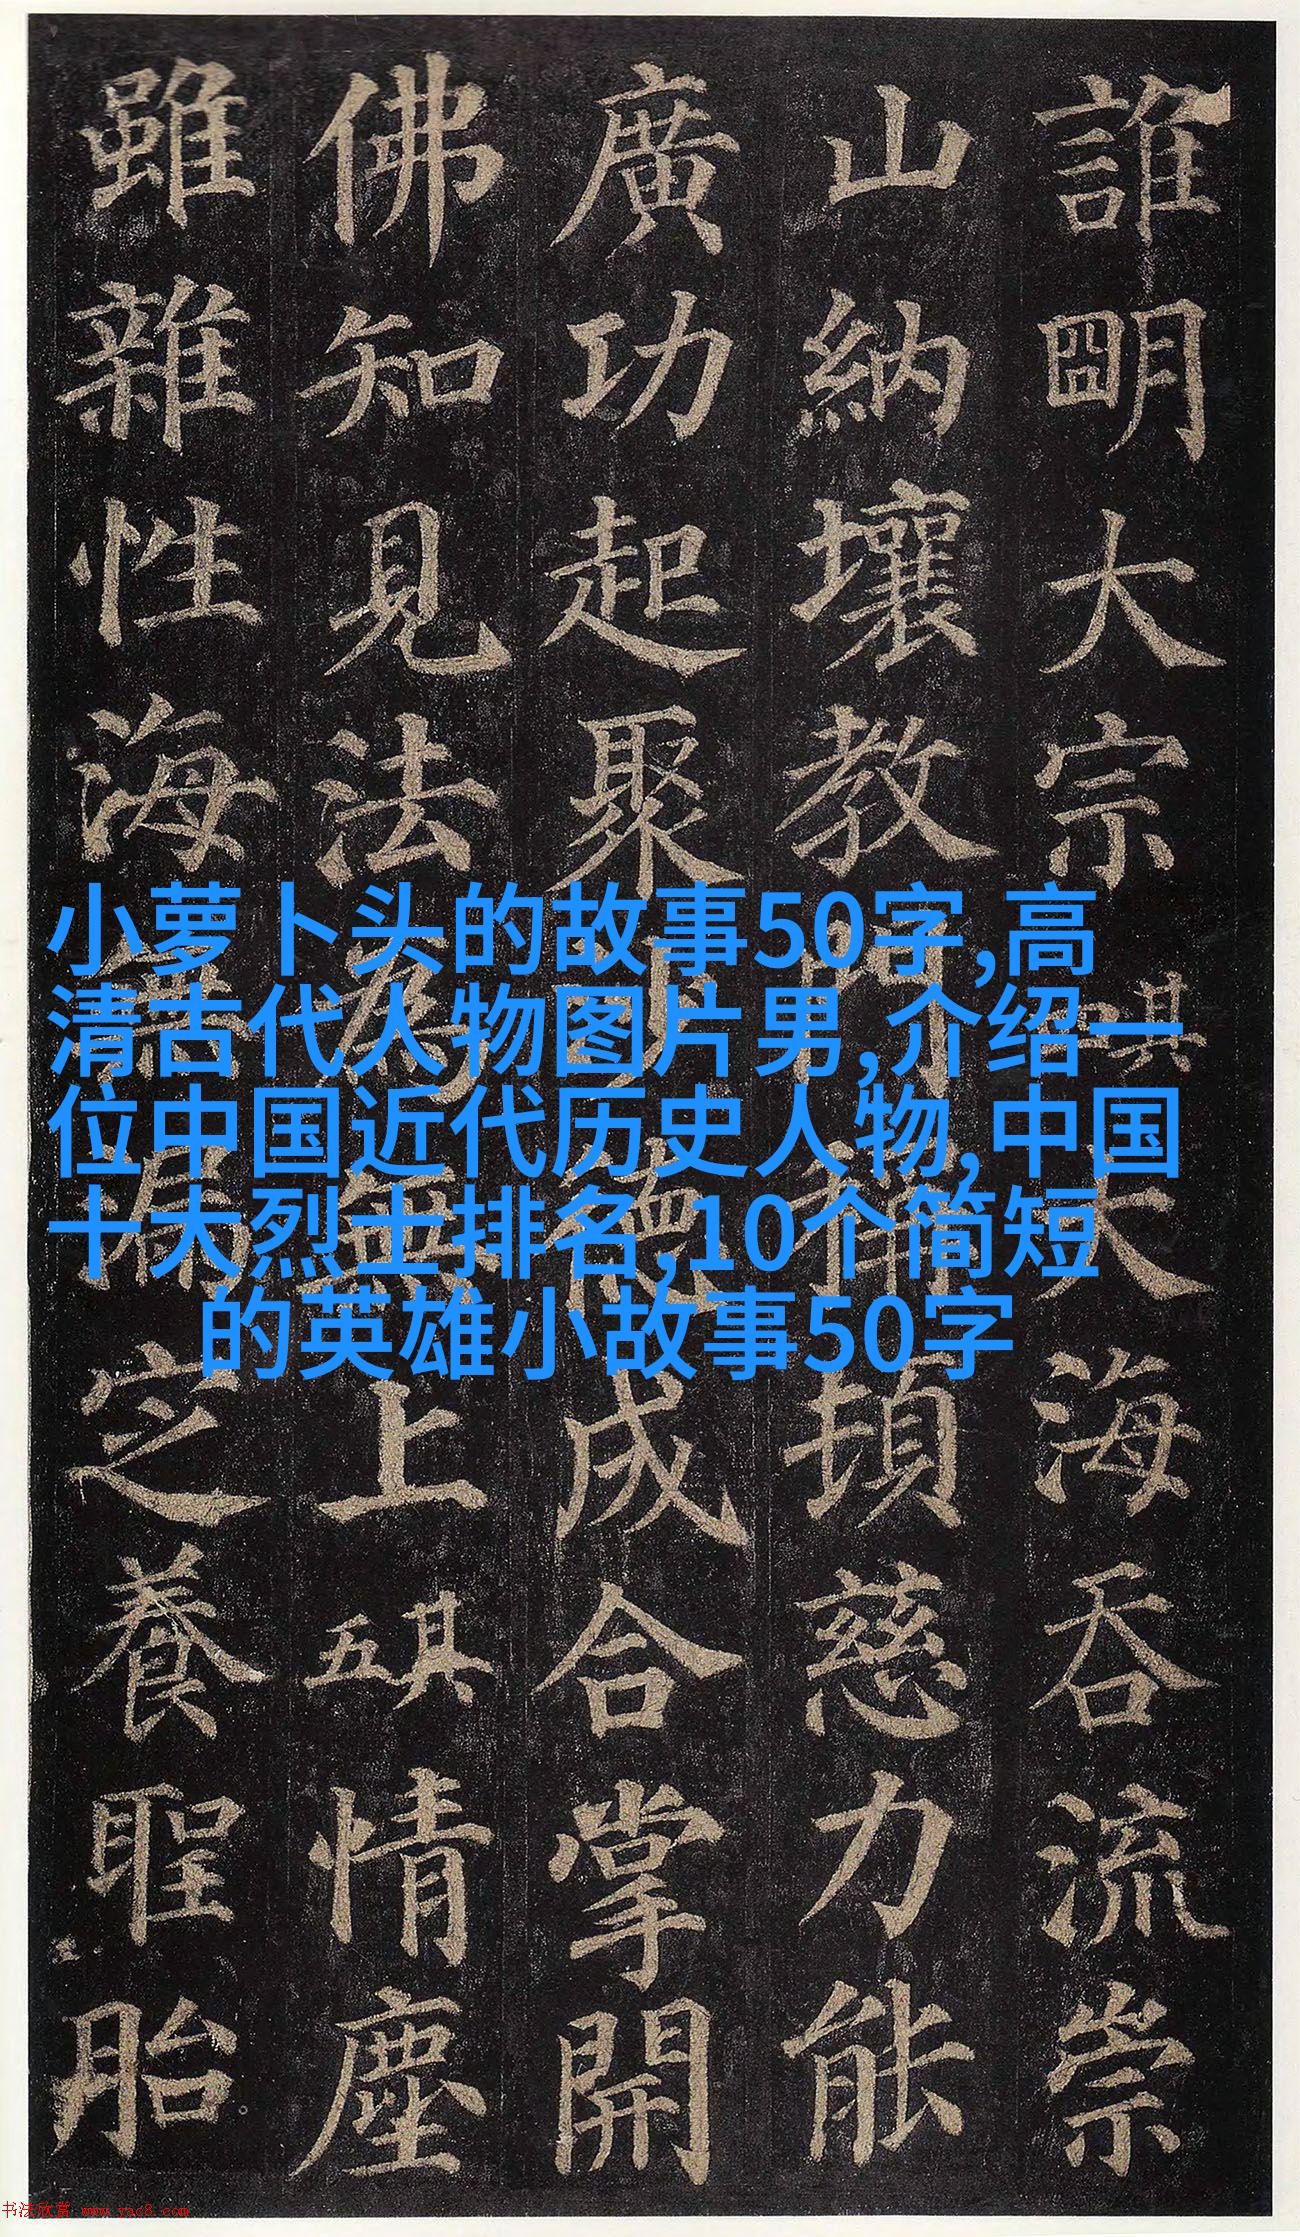 誰明大宗其一大海吞流崇
山納壤教門稱頓慈力能
廣功起聚德成合掌開
佛知見法為無上其五情塵
雖雜性海無漏定養聖胎
小萝卜头的故事50字,高
清古代人物图片男,介绍一
位中国近代历史人物,中国
十大烈士排名,10个简短
的英雄小故事50字
书法欣赏 www.yac8.com